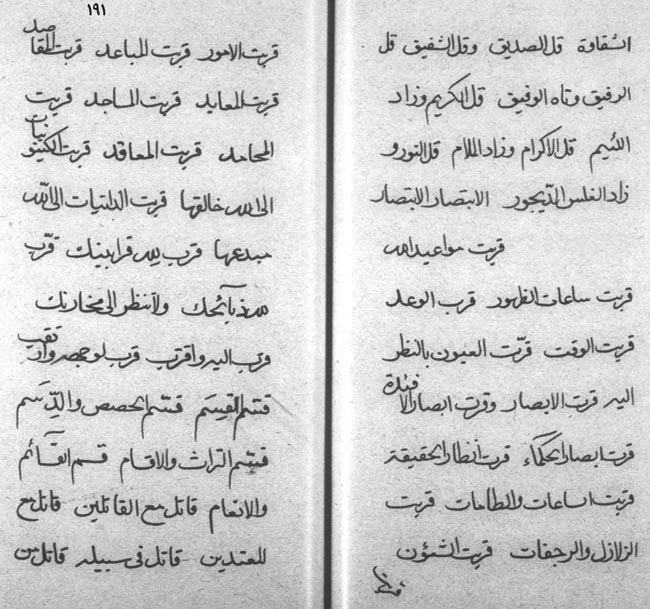 الشقاوة قل الصديق وقل الشفيق قل
الرفيق وتاه الوفيق قل الكريم وزاد
اللئيم قل الاكرام وزاد الملام قل النور و
زاد الغلس الديجور الابتصار الابتصار
قربت مواعيد الله
قربت ساعات الظهور قرب الوعد
قربت الوقت قرّت العيون بالنظر
اليه قرت الابصار وقرت ابصار الافئدة
قرت ابصار الحكماء قرت انظار الحقيقة
قربت الساعات والطامات قربت
الزلازل والرجفات قربت الشؤن
١٩١
قربت الامور قربت المباعد قربت المقاصد
قربت المعابد قربت المساجد قربت
المحامد قربت المعاقد قربت
الى الله خالقها قربت الى الله
مبدعها قرب لله قرابينك قرّب
ولا تنظر الى
قرب اليه واقترب قرب لوجهه وارتقب
قسّم القسم قسّم الحصص والدّسم
قسّم التراث والاقسام قسم الغنائم
والانعام قاتل مع القاتلين قاتل مع
المعتدين قاتل فى سبيله قاتل من